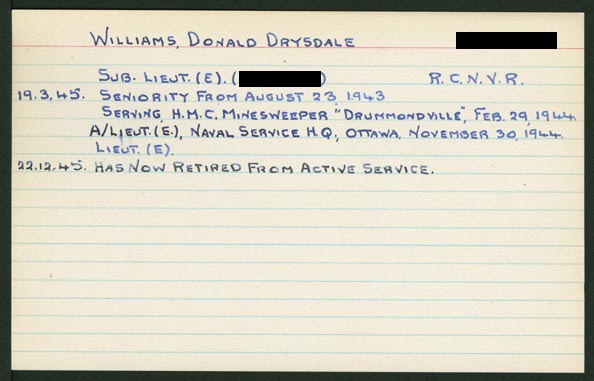 WILLIAMS, DONALD DRYSDALE
SUB. LIEUT. (E). ( ) R.C.N.V.R.
19.3.45. SENIORITY FROM AUGUST 23, 1943
SERVING, H.M.C. MINESWEEPER "DRUMMONDVILLE", FEB. 29, 1944.
A/LIEUT. (E.), NAVAL SERVICE H.Q., OTTAWA, NOVEMBER 30, 1944.
LIEUT. (E).
22.12.45. HAS NOW RETIRED FROM ACTIVE SERVICE.